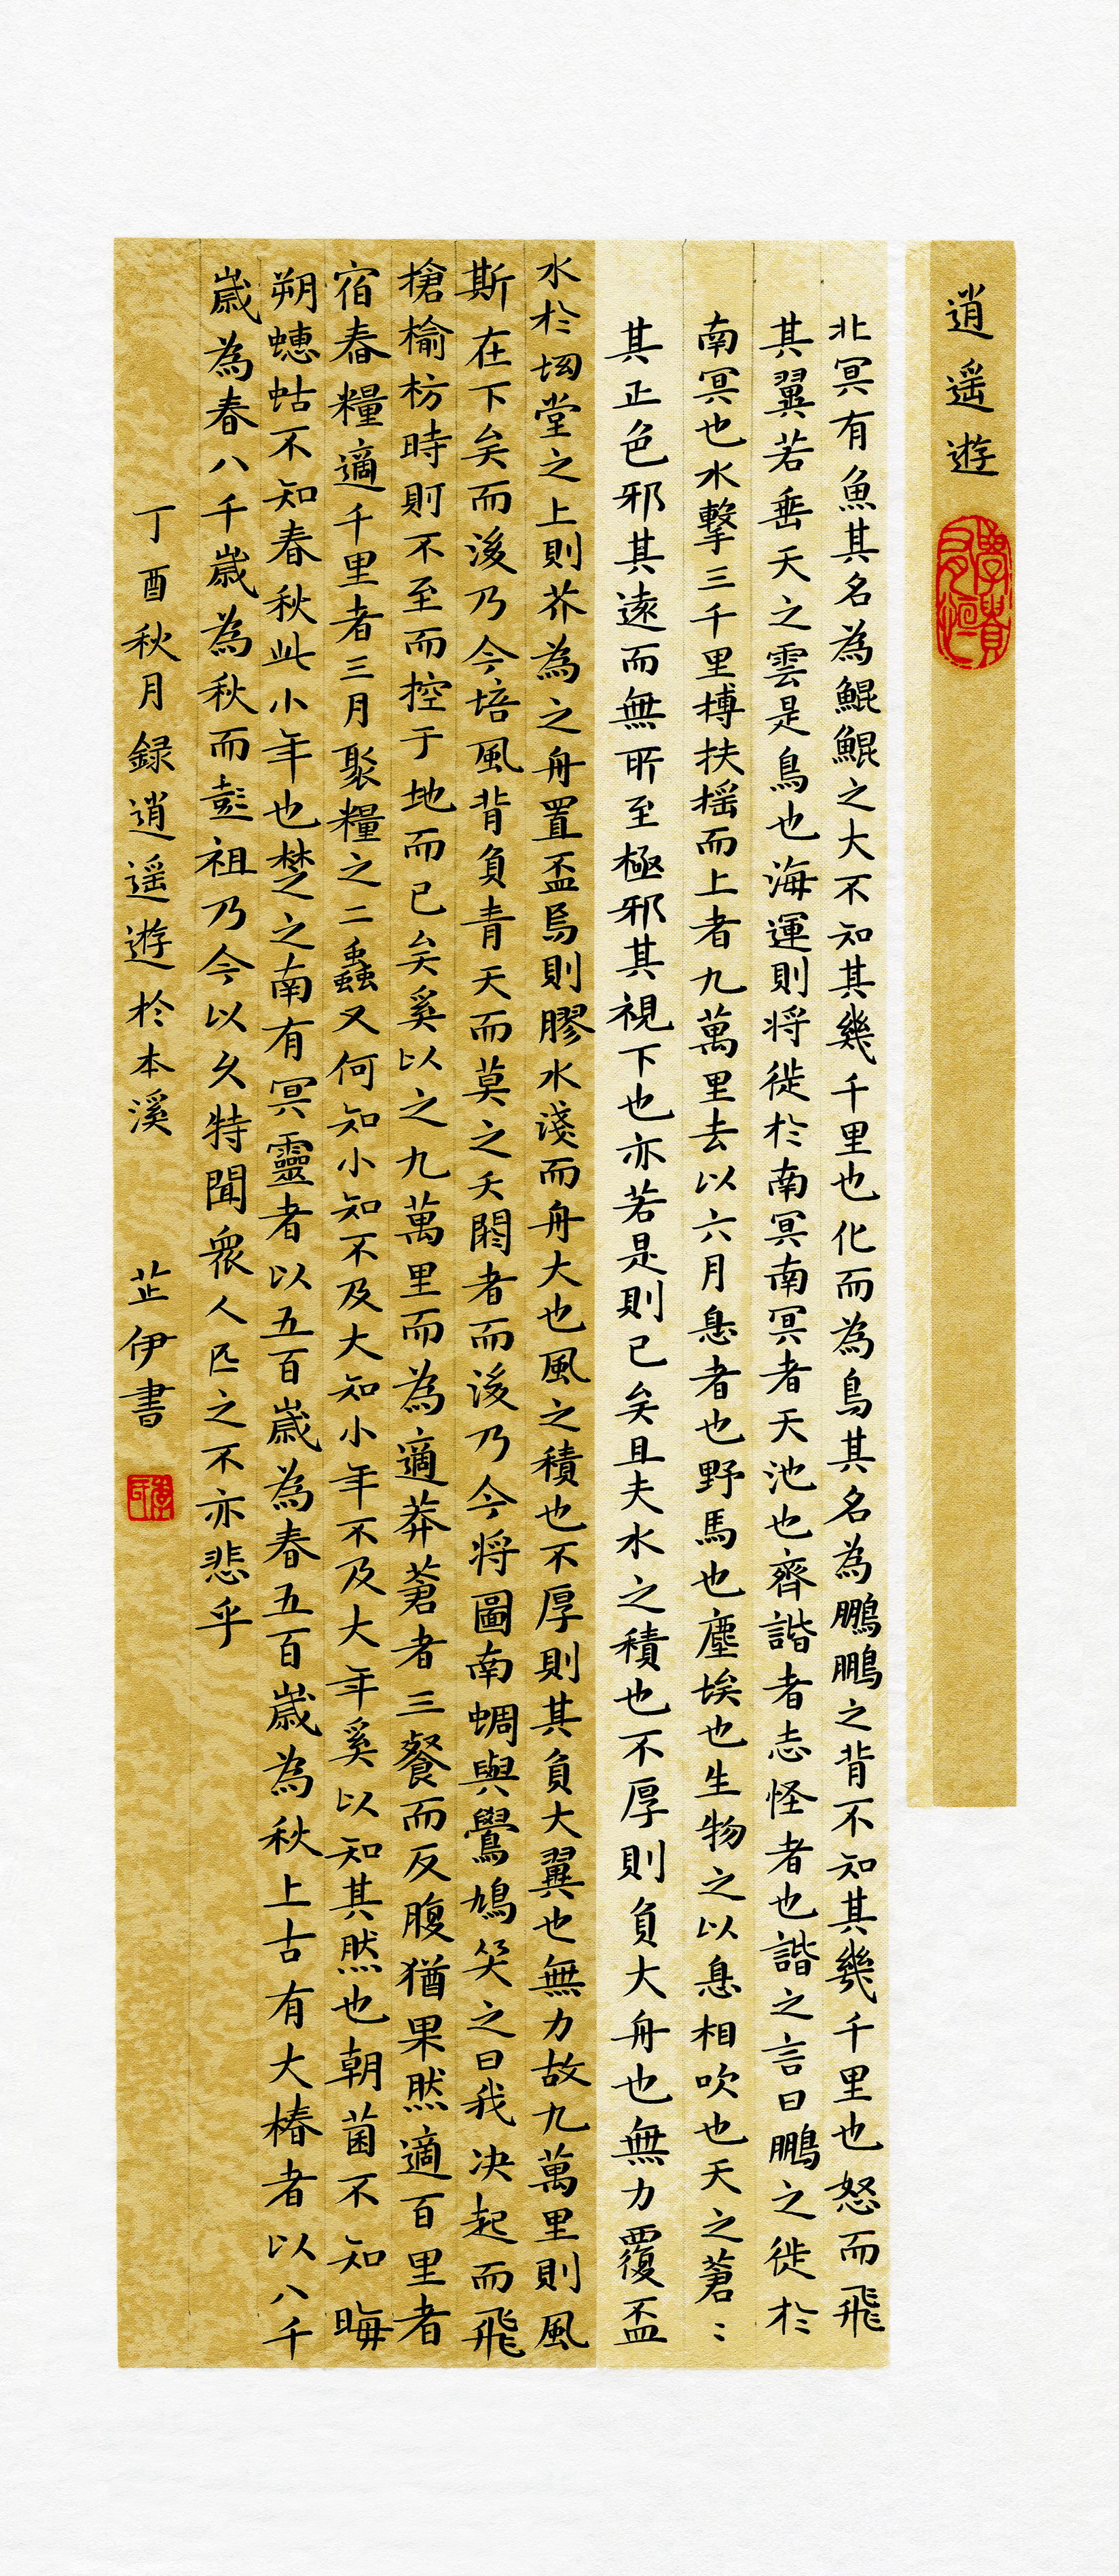 逍遥遊
學貴有恒
北冥有魚其名為鯤鯤之大不知其幾千里也化而為鳥其名為鵬鵬之背不知其幾千里也怒而飛
其翼若垂天之雲是鳥也海運則将徙於南冥南冥者天池也齊諧者志怪者也諧之言曰鵬之徙於
南冥也水擊三千里搏扶摇而上者九萬里去以六月息者也野馬也塵埃也生物之以息相吹也天之蒼〻
其正色邪其遠而無所至極邪其視下也亦若是則已矣且夫水之積也不厚則負大舟也無力覆盃
水於坳堂之上則芥為之舟置盃焉則膠水淺而舟大也風之積也不厚則其負大翼也無力故九萬里則風
斯在下矣而後乃今培風背負青天而莫之夭閼者而後乃今将圖南蜩與鷽鳩笑之曰我决起而飛
搶榆枋時則不至而控于地而已矣奚以之九萬里而為適莽蒼者三餐而反腹猶果然適百里者
宿舂糧適千里者三月聚糧之二蟲又何知小知不及大知小年不及大年奚以知其然也朝菌不知晦
朔蟪蛄不知春秋此小年也楚之南有冥靈者以五百歲為春五百歲為秋上古有大椿者以八千
歲為春八千歲為秋而彭祖乃今以久特聞衆人匹之不亦悲乎
丁酉秋月録逍遥遊於本溪 芷伊書